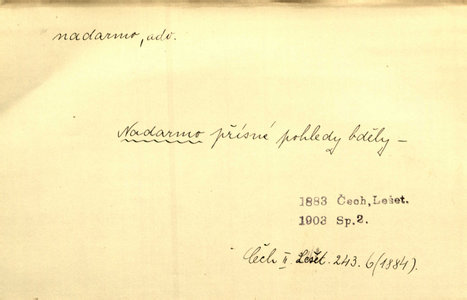 nadarmo, adv.
Nadarmo přísné pohledy bděly –
1883 Čech, Lešet.
1903 Sp.2.
Čech II. Lešet. 243. 6 (1884).